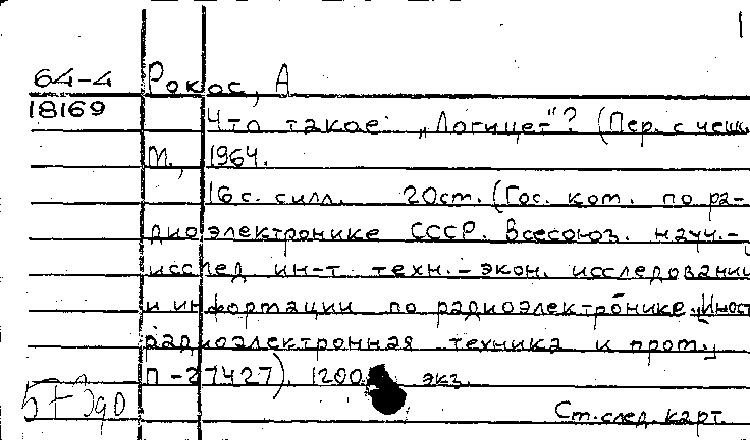 64-4 Рокос, А
18169 Что такое „Логицет"? (Пер. с чешс
М., 1964.
16 с. с илл. 20 см. (Гос. ком. по ра-
диоэлектронике СССР. Всесоюз. науч.-
исслед ин-т техн.-экон. исследовании
и информации по радиоэлектронике. „Иност
радиоэлектронная техника и пром"
П-27427). 1200 экз.
Ст. след. карт.